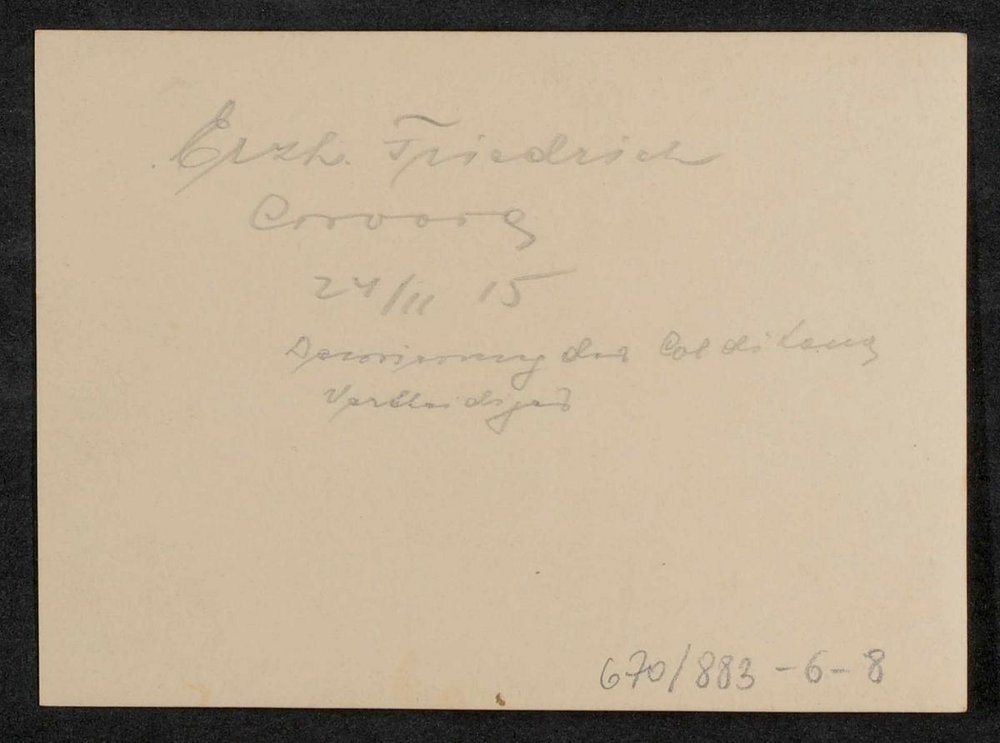 Erzh. Friedrich
Corvara
24/11 15
Decorierung der Col di Lana
Verteidiger
670/883-6-8